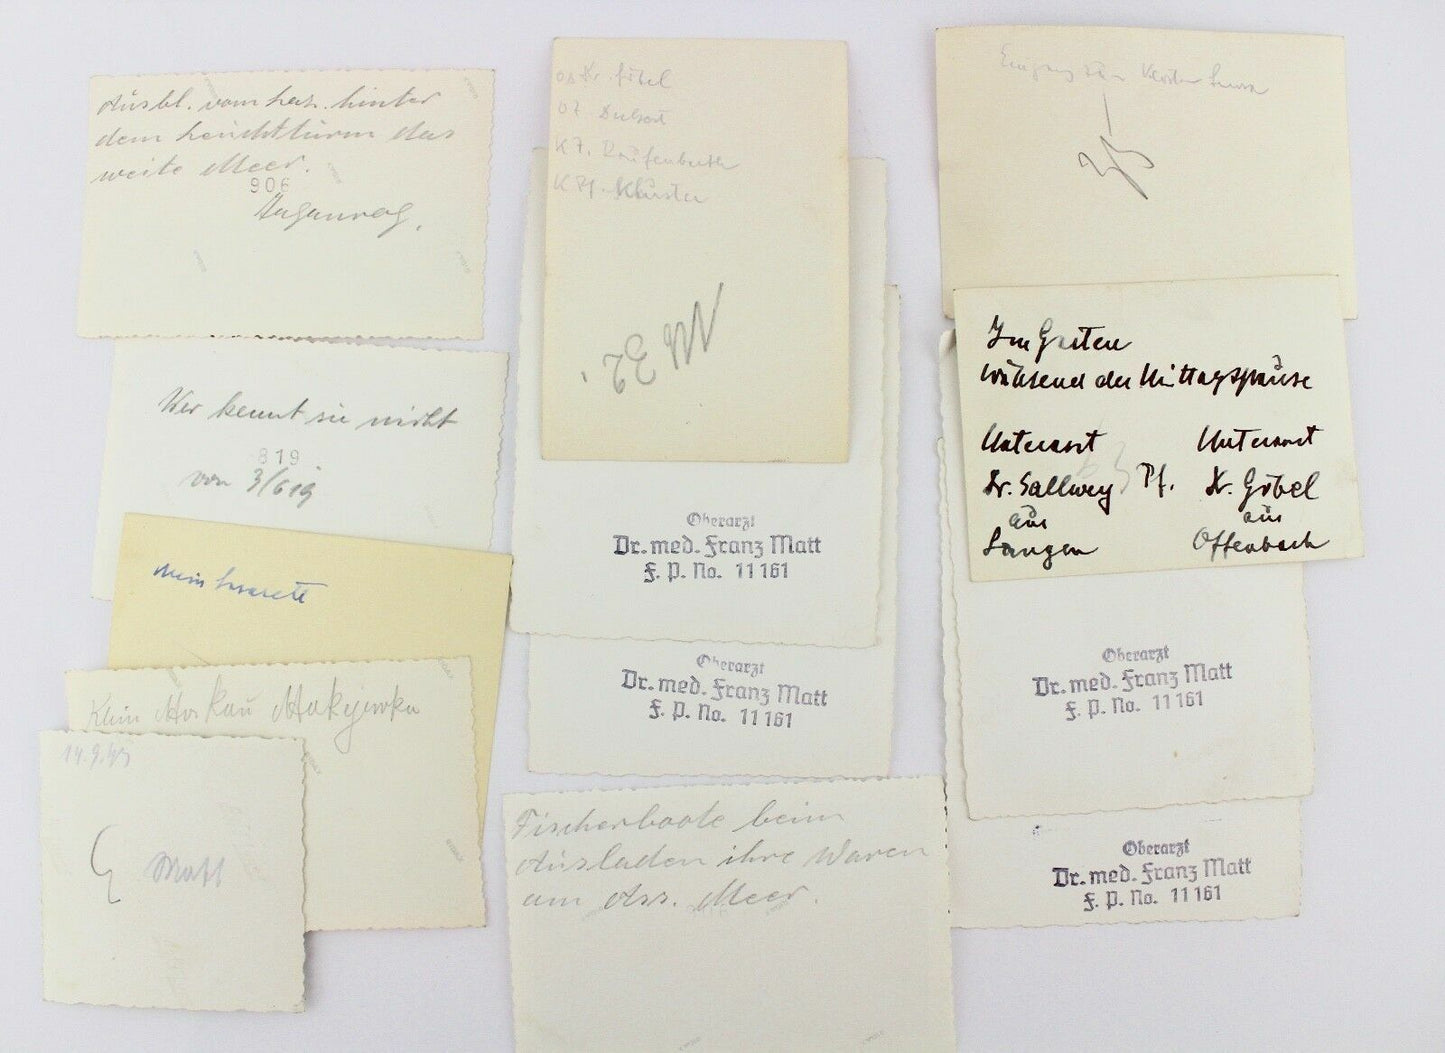 Ausbl. vom Haf. hinter
dem Leuchtturm das
weite Meer.
906
Taganrog.
Wer kennt sie nicht
819
von 3/619
mein
Klein Moskau Makejewka
14.9.43
Matt
Dr. Göbel
K Pf. Kloster
32.
Oberarzt
Dr. med. Franz Matt
F. P. No. 11161
Oberarzt
Dr. med. Franz Matt
F. P. No. 11161
Fischerboote beim
Ausladen ihre Waren
am Ass. Meer.
Eingang zum
Im Garten
während der Mittagspause
Unterarzt Unterarzt
Dr. Sallwey Pf. Dr. Göbel
aus aus
Langen Offenbach
Oberarzt
Dr. med. Franz Matt
F. P. No. 11161
Oberarzt
Dr. med. Franz Matt
F. P. No. 11161